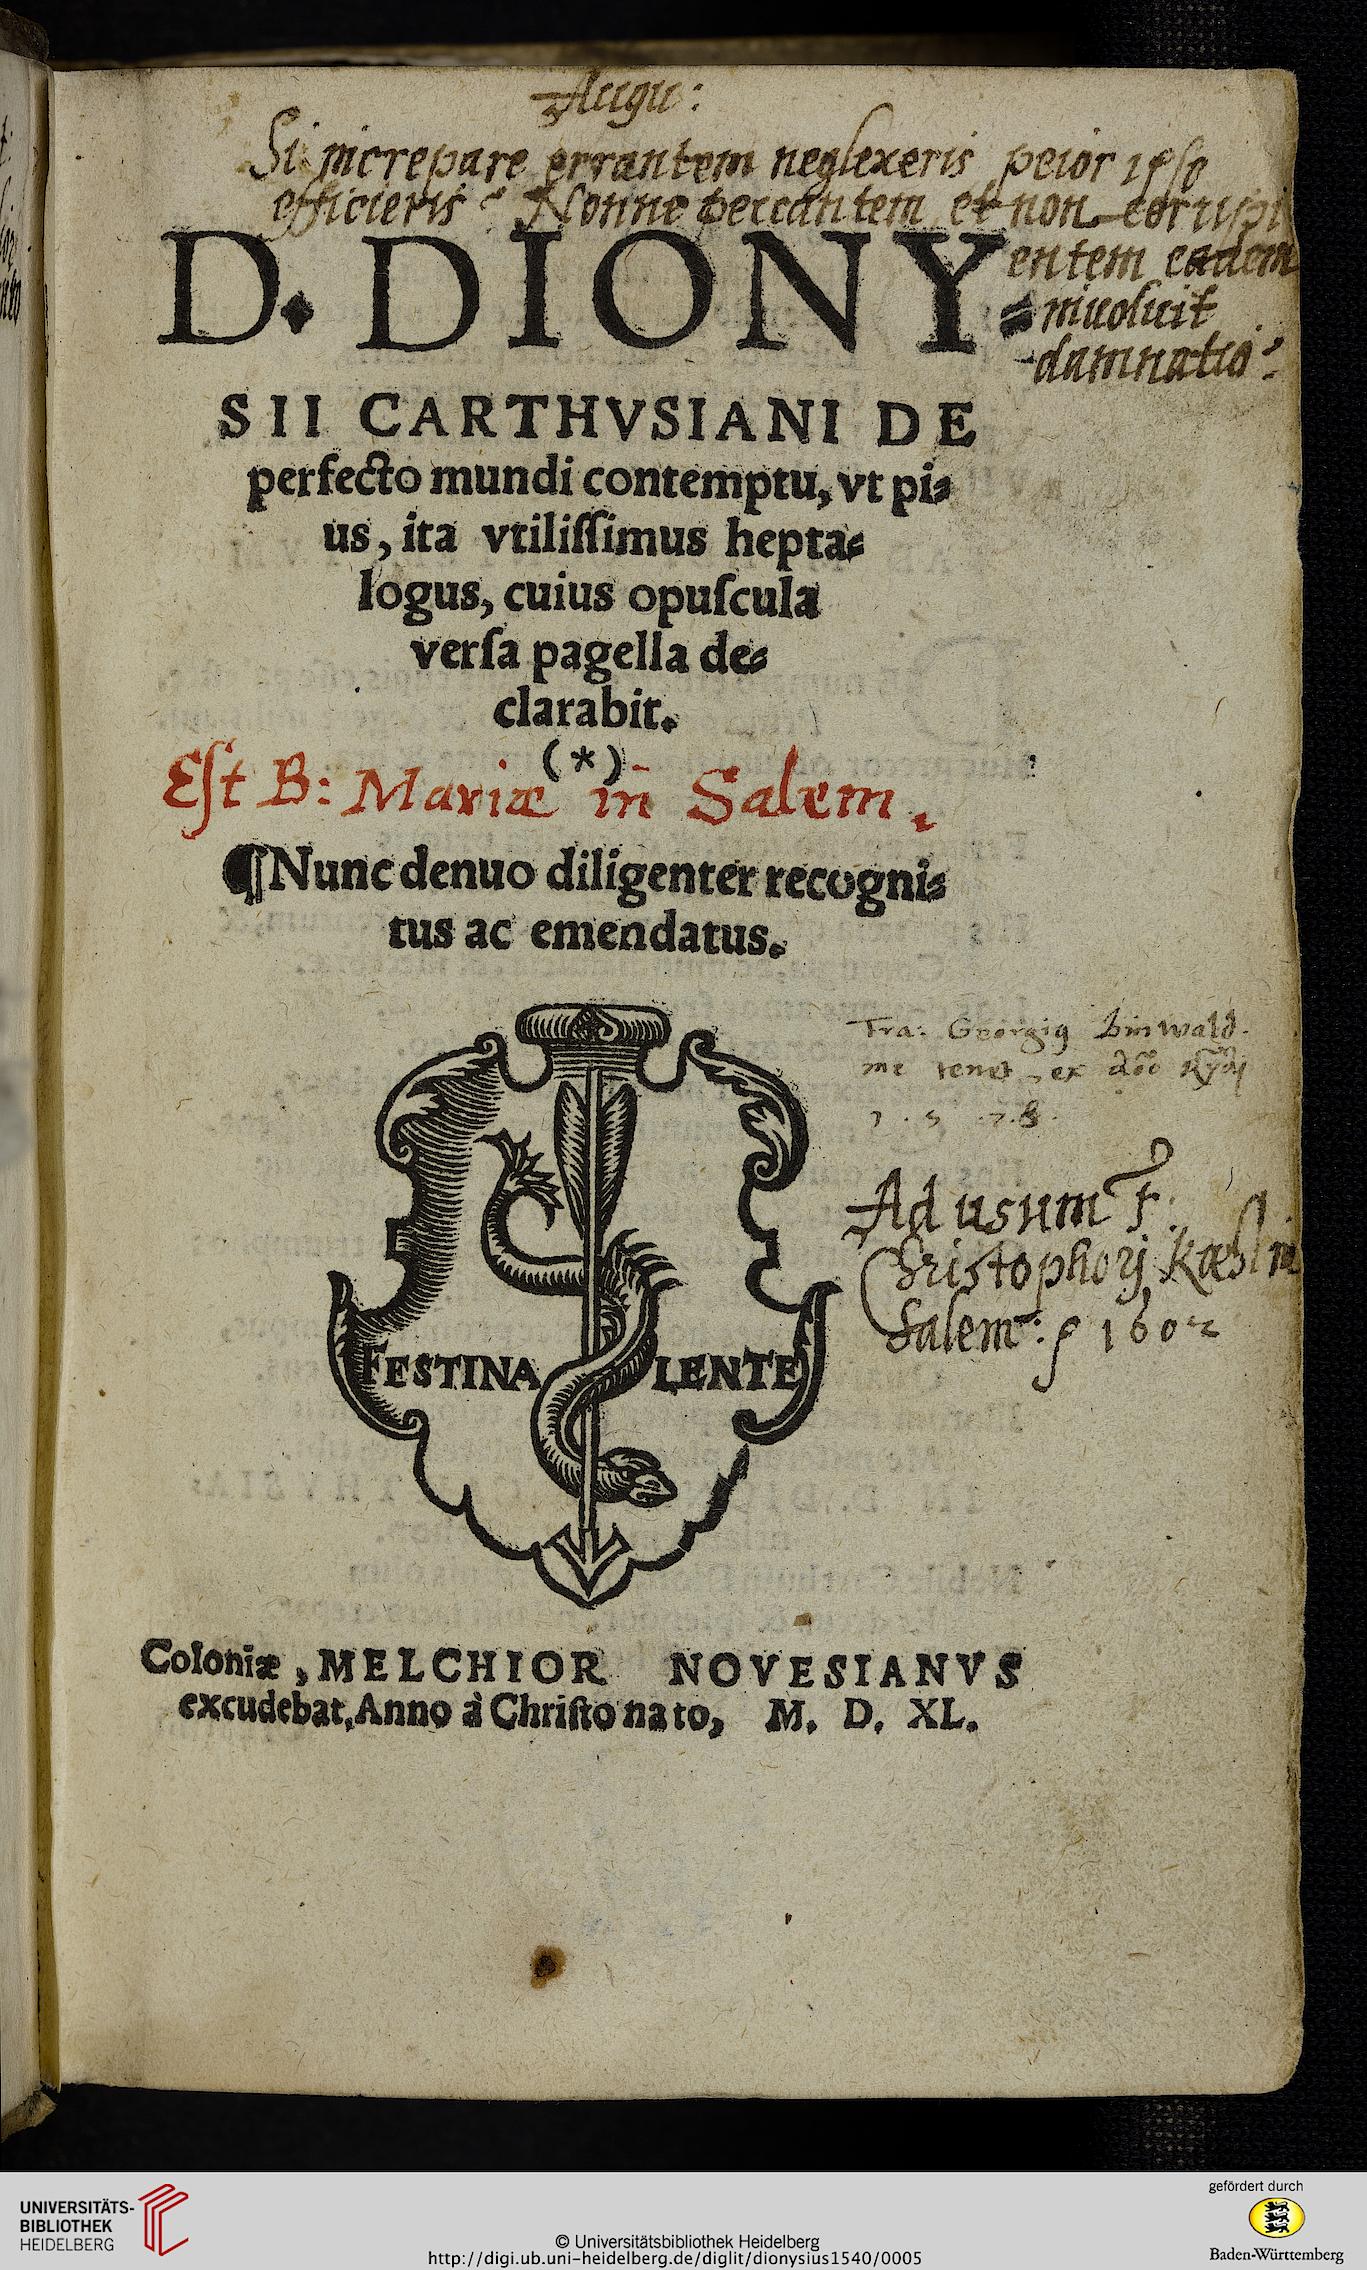 Augu:
Si increpare errantem neglexeris peior ipso
efficieris? Nonne peccantem et non corripi
entem eadem
inuoluit
damnatio?
D. DIONY-
SII CARTHVSIANI DE
perfecto mundi contemptu, vt pi-
us, ita vtiliſſimus hepta-
logus, cuius opuſcula
verſa pagella de-
clarabit.
(*)
Eſt B: Mariæ in Salem.
¶Nunc denuo diligenter recogni-
tus ac emendatus.
Fra: Georgiꝰ binwald.
me tenet, ex
1.5.7.8.
Ad usum F.
Christophorj Kæslin
Salem: 1602
FESTINA LENTE
Coloniæ, MELCHIOR NOVESIANVS
excudebat, Anno à Chriſto nato, M. D. XL.
UNIVERSITÄTS-
BIBLIOTHEK
HEIDELBERG
© Universitätsbibliothek Heidelberg
http://digi.ub.uni-heidelberg.de/diglit/dionysius1540/0005
gefördert durch
Baden-Württemberg